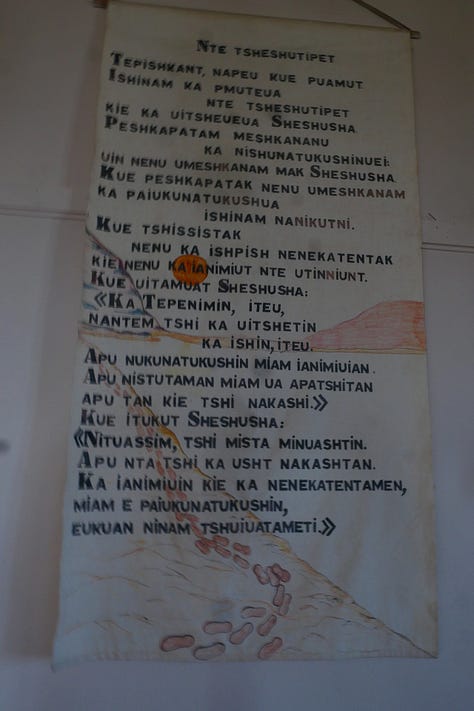 Nte tsheshutipet
Tepishkant, napeu kue puamut
Ishinam ka pmuteua
nte tsheshutipet
kie ka uitsheueua Sheshusha.
Peshkapatam meshkananu
ka nishunatukushinuei:
uin nenu umeshkanam mak Sheshusha.
Kue peshkapatak nenu umeshkanam
ka paiukunatukushua
ishinam nanikutni.
Kue tshissistak
nenu ka ishpish nenekatentak
kie nenu ka ianimiut nte utinniunt.
Kue uitamuat Sheshusha:
«Ka Tepenimin, iteu,
nantem tshi ka uitshetin
ka ishin, iteu.
Apu nukunatukushin miam ianimiuian.
Apu nistutaman miam ua apatshitan
apu tan kie tshi nakashi.»
Kue itukut Sheshusha:
«Nituassim, tshi mista minuashtin.
Apu nta tshi ka usht nakashtan.
Ka ianimiuin kie ka nenekatentamen,
miam e paiukunatukushin,
eukuan ninam tshuiuatameti.»